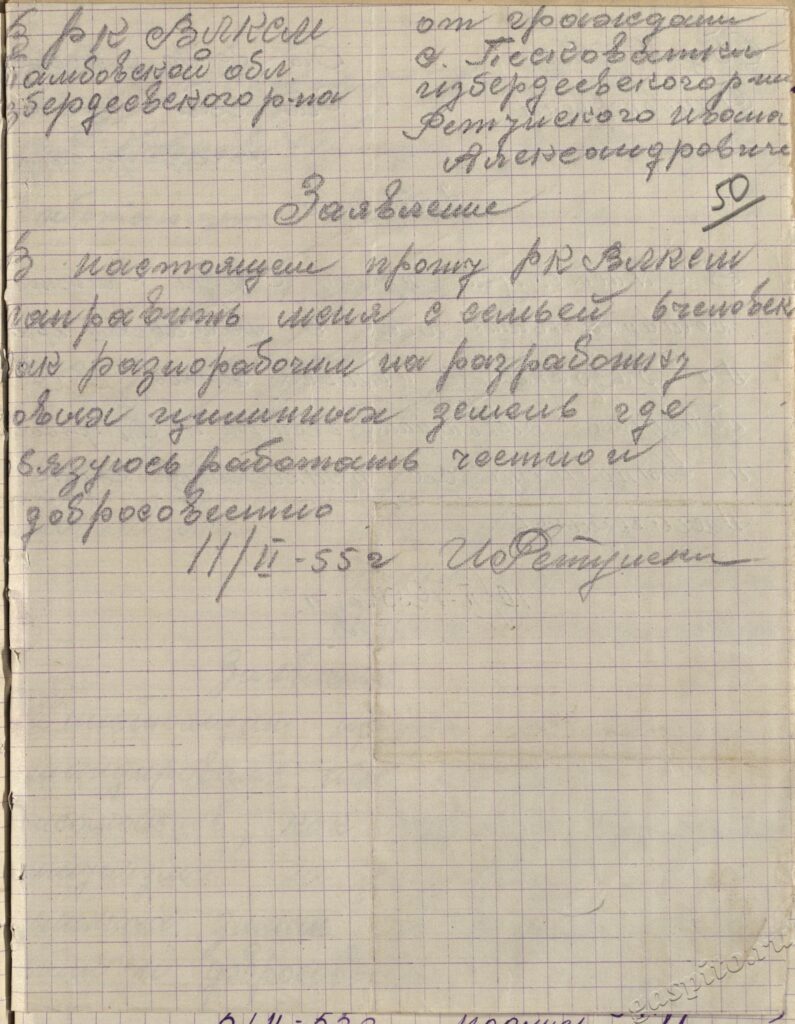 В РК ВЛКСМ
тамбовской обл.
избердеевского р-на
от граждани
с. Песковатки
избердеевского р-на
Ретуйского Ивана
Александровиче
50
Заявление
В настоящем прошу РК ВЛКСМ
направить меня с семьей 6 человек
как разнорабочим на разработку
овых цилинных земель где
бязуюсь работать честно и
добросовестно
11/II-55г
gaspito.ru